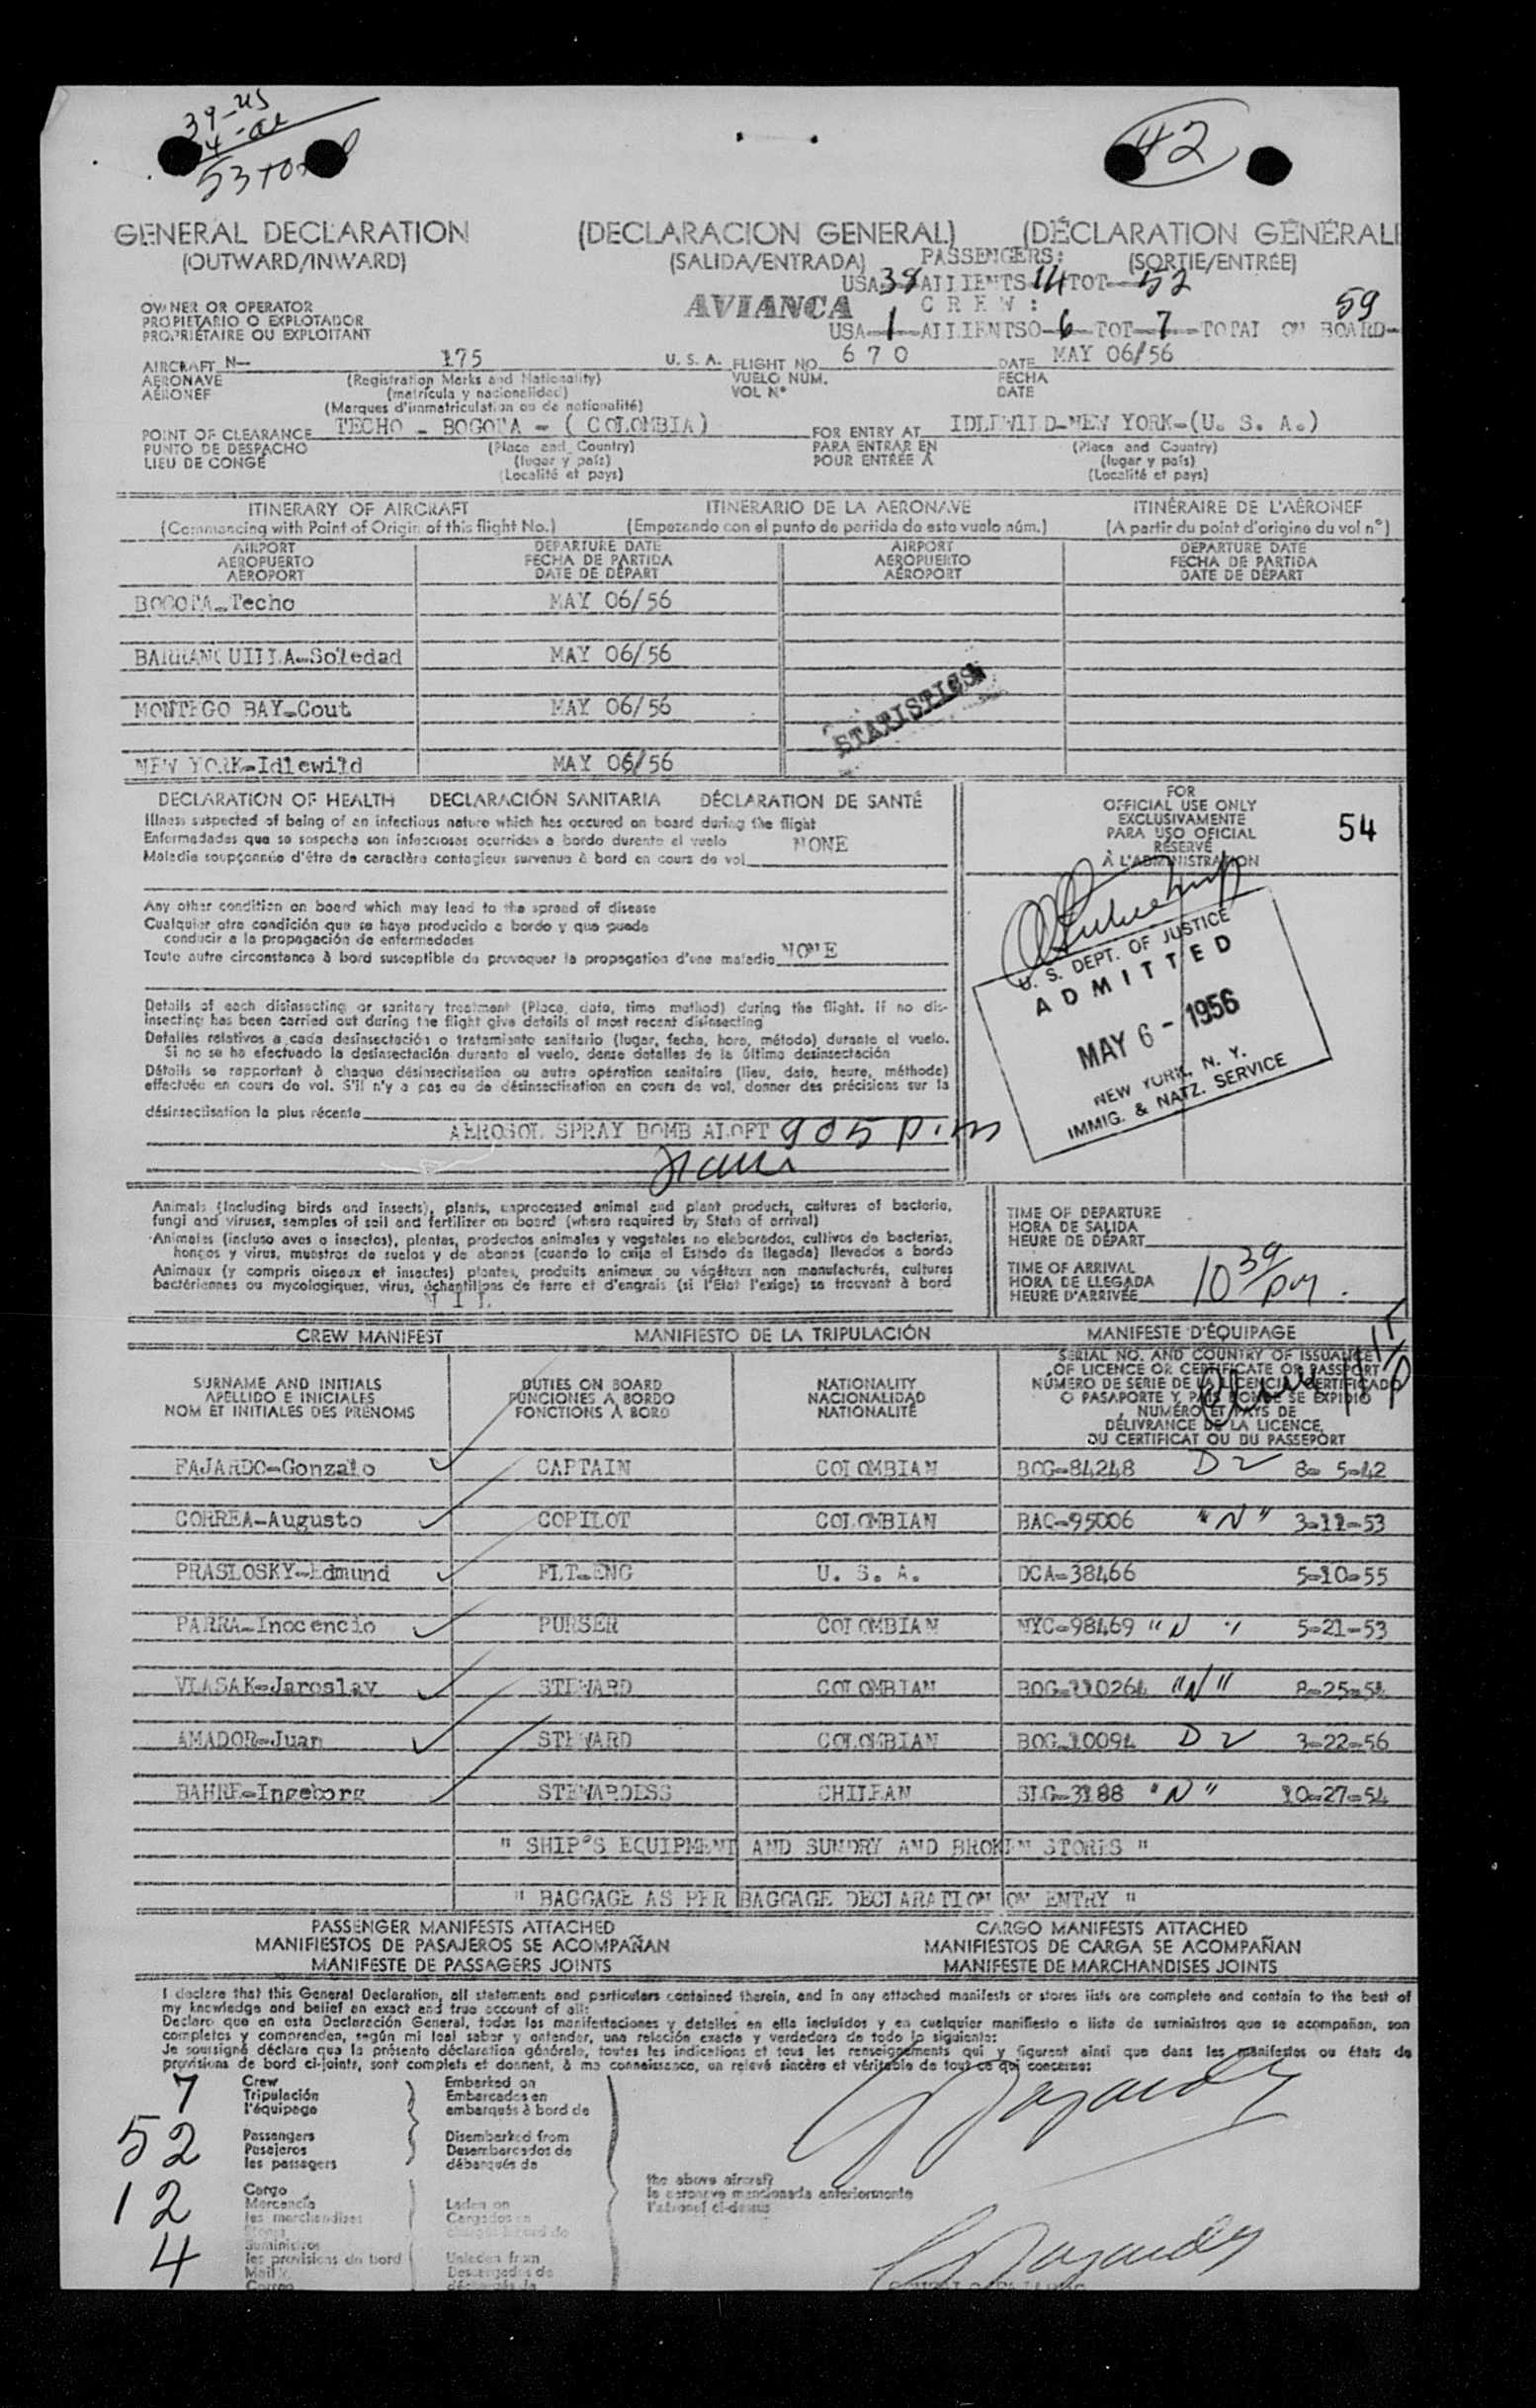 39-us
4-al
53 total
42
GENERAL DECLARATION (DECLARACION GENERAL) (DÉCLARATION GÉNÉRALE
(OUTWARD/INWARD) (SALIDA/ENTRADA) PASSENGERS: (SORTIE/ENTRÉE)
USA 38 ALLIENTS 14 TOT 52
OWNER OR OPERATOR AVIANCA C R E W : 59
PROPIETARIO O EXPLOTADOR USA-1-ALLIENTSO-6-TOT-7-TOTAL ON BOARD-
PROPRIÉTAIRE OU EXPLOITANT
AIRCRAFT N- 175 U. S. A. FLIGHT NO. 6 7 0 DATE MAY 06/56
AERONAVE (Registration Marks and Nationality) VUELO NÚM. FECHA
AÉRONEF (matrícula y nacionalidad) VOL N° DATE
(Marques d'immatriculation ou de nationalité)
POINT OF CLEARANCE TECHO - BOGOTA - ( COLOMBIA) FOR ENTRY AT IDLEWILD-NEW YORK-(U. S. A.)
PUNTO DE DESPACHO (Place and Country) PARA ENTRAR EN (Place and Country)
LIEU DE CONGÉ (lugar y país) POUR ENTRÉE À (lugar y país)
(Localité et pays) (Localité et pays)
ITINERARY OF AIRCRAFT ITINERARIO DE LA AERONAVE ITINÉRAIRE DE L'AÉRONEF
(Commencing with Point of Origin of this flight No.) (Empezando con el punto de partida de este vuelo núm.) (A partir du point d'origine du vol n°)
AIRPORT DEPARTURE DATE AIRPORT DEPARTURE DATE
AEROPUERTO FECHA DE PARTIDA AEROPUERTO FECHA DE PARTIDA
AÉROPORT DATE DE DÉPART AÉROPORT DATE DE DÉPART
BOGOTA-Techo MAY 06/56
BARRANQUILLA-Soledad MAY 06/56
MONTEGO BAY-Cout MAY 06/56
STATISTICS
NEW YORK-Idlewild MAY 06/56
DECLARATION OF HEALTH DECLARACIÓN SANITARIA DÉCLARATION DE SANTÉ
Illness suspected of being of an infectious nature which has occured on board during the flight
Enfermedades que se sospecha son infecciosas ocurridas a bordo durante el vuelo NONE
Maladie soupçonnée d'être de caractère contagieux survenue à bord en cours de vol
FOR
OFFICIAL USE ONLY
EXCLUSIVAMENTE
PARA USO OFICIAL
RÉSERVÉ
À L'ADMINISTRATION
54
Any other condition on board which may lead to the spread of disease
Cualquier otra condición que se haya producido a bordo y que puede
conducir a la propagación de enfermedades
Toute autre circonstance à bord susceptible de provoquer la propagation d'une maladie NONE
U. S. DEPT. OF JUSTICE
ADMITTED
MAY 6 - 1956
NEW YORK, N. Y.
IMMIG. & NATZ. SERVICE
Details of each disinsecting or sanitary treatment (Place, date, time method) during the flight. If no dis-
insecting has been carried out during the flight give details of most recent disinsecting
Detalles relativos a cada desinsectación o tratamiento sanitario (lugar, fecha, hora, método) durante el vuelo.
Si no se ha efectuado la desinsectación durante el vuelo, dense detalles de la última desinsectación
Détails se rapportant à chaque désinsectisation ou autre opération sanitaire (lieu, date, heure, méthode)
effectuée en cours de vol. S'il n'y a pas eu de désinsectisation en cours de vol, donner des précisions sur la
désinsectisation la plus récente
AEROSOL SPRAY BOMB ALOFT 905 p.m
Animals (including birds and insects), plants, unprocessed animal and plant products, cultures of bacteria,
fungi and viruses, samples of soil and fertilizer on board (where required by State of arrival)
Animales (incluso aves o insectos), plantas, productos animales y vegetales no elaborados, cultivos de bacterias,
hongos y virus, muestras de suelos y de abonos (cuando lo exija el Estado de llegada) llevados a bordo
Animaux (y compris oiseaux et insectes) plantes, produits animaux ou végétaux non manufacturés, cultures
bactériennes ou mycologiques, virus, échantillons de terre et d'engrais (si l'Etat l'exige) se trouvant à bord
N I L
TIME OF DEPARTURE
HORA DE SALIDA
HEURE DE DÉPART
TIME OF ARRIVAL
HORA DE LLEGADA
HEURE D'ARRIVÉE 10 39 pm.
CREW MANIFEST MANIFIESTO DE LA TRIPULACIÓN MANIFESTE D'ÉQUIPAGE
SURNAME AND INITIALS DUTIES ON BOARD NATIONALITY
APELLIDO E INICIALES FUNCIONES A BORDO NACIONALIDAD
NOM ET INITIALES DES PRÉNOMS FONCTIONS À BORD NATIONALITÉ
SERIAL NO. AND COUNTRY OF ISSUANCE
OF LICENCE OR CERTIFICATE OR PASSPORT
NÚMERO DE SERIE DE LA LICENCIA, CERTIFICADO
O PASAPORTE Y PAIS DONDE SE EXPIDIÓ
NUMÉRO ET PAYS DE
DÉLIVRANCE DE LA LICENCE,
DU CERTIFICAT OU DU PASSEPORT
FAJARDO-Gonzalo CAPTAIN COLOMBIAN BOG-84248 D2 8- 5-42
CORREA-Augusto COPILOT COLOMBIAN BAQ-95006 "N" 3-11-53
PRASLOSKY-Edmund FLT-ENG U. S. A. DCA-38466 5-10-55
PARRA-Inocencio PURSER COLOMBIAN NYC-98469 "N" 5-21-53
VLASAK-Jaroslav STEWARD COLOMBIAN BOG-110264 "N" 8-25-54
AMADOR-Juan STEWARD COLOMBIAN BOG-10094 D2 3-22-56
BAHRE-Ingeborg STEWARDESS CHILEAN SLG-3188 "N" 10-27-54
" SHIP'S EQUIPMENT AND SUNDRY AND BROKEN STORES "
" BAGGAGE AS PER BAGGAGE DECLARATION ON ENTRY "
PASSENGER MANIFESTS ATTACHED CARGO MANIFESTS ATTACHED
MANIFIESTOS DE PASAJEROS SE ACOMPAÑAN MANIFIESTOS DE CARGA SE ACOMPAÑAN
MANIFESTE DE PASSAGERS JOINTS MANIFESTE DE MARCHANDISES JOINTS
I declare that this General Declaration, all statements and particulars contained therein, and in any attached manifests or stores lists are complete and contain to the best of
my knowledge and belief an exact and true account of all:
Declaro que en esta Declaración General, todas las manifestaciones y detalles en ella incluidos y en cualquier manifiesto o lista de suministros que se acompañan, son
completos y comprenden, según mi leal saber y entender, una relación exacta y verdadera de todo lo siguiente:
Je soussigné déclare que la présente déclaration générale, toutes les indications et tous les renseignements qui y figurent ainsi que dans les manifestes ou états de
provisions de bord ci-joints, sont complets et donnent, à ma connaissance, un relevé sincère et véritable de tout ce qui concerne:
7 Crew Embarked on
Tripulación Embarcados en
l'équipage embarqués à bord de
52 Passengers Disembarked from
Pasajeros Desembarcados de
les passagers débarqués de
the above aircraft
la aeronave mencionada anteriormente
l'aéronef ci-dessus
12 Cargo
Mercancía Laden on
les marchandises Cargados en
Stores chargés à bord de
4 Suministros
les provisions de bord Unladen from
Mail Descargados de
Correo déchargés de